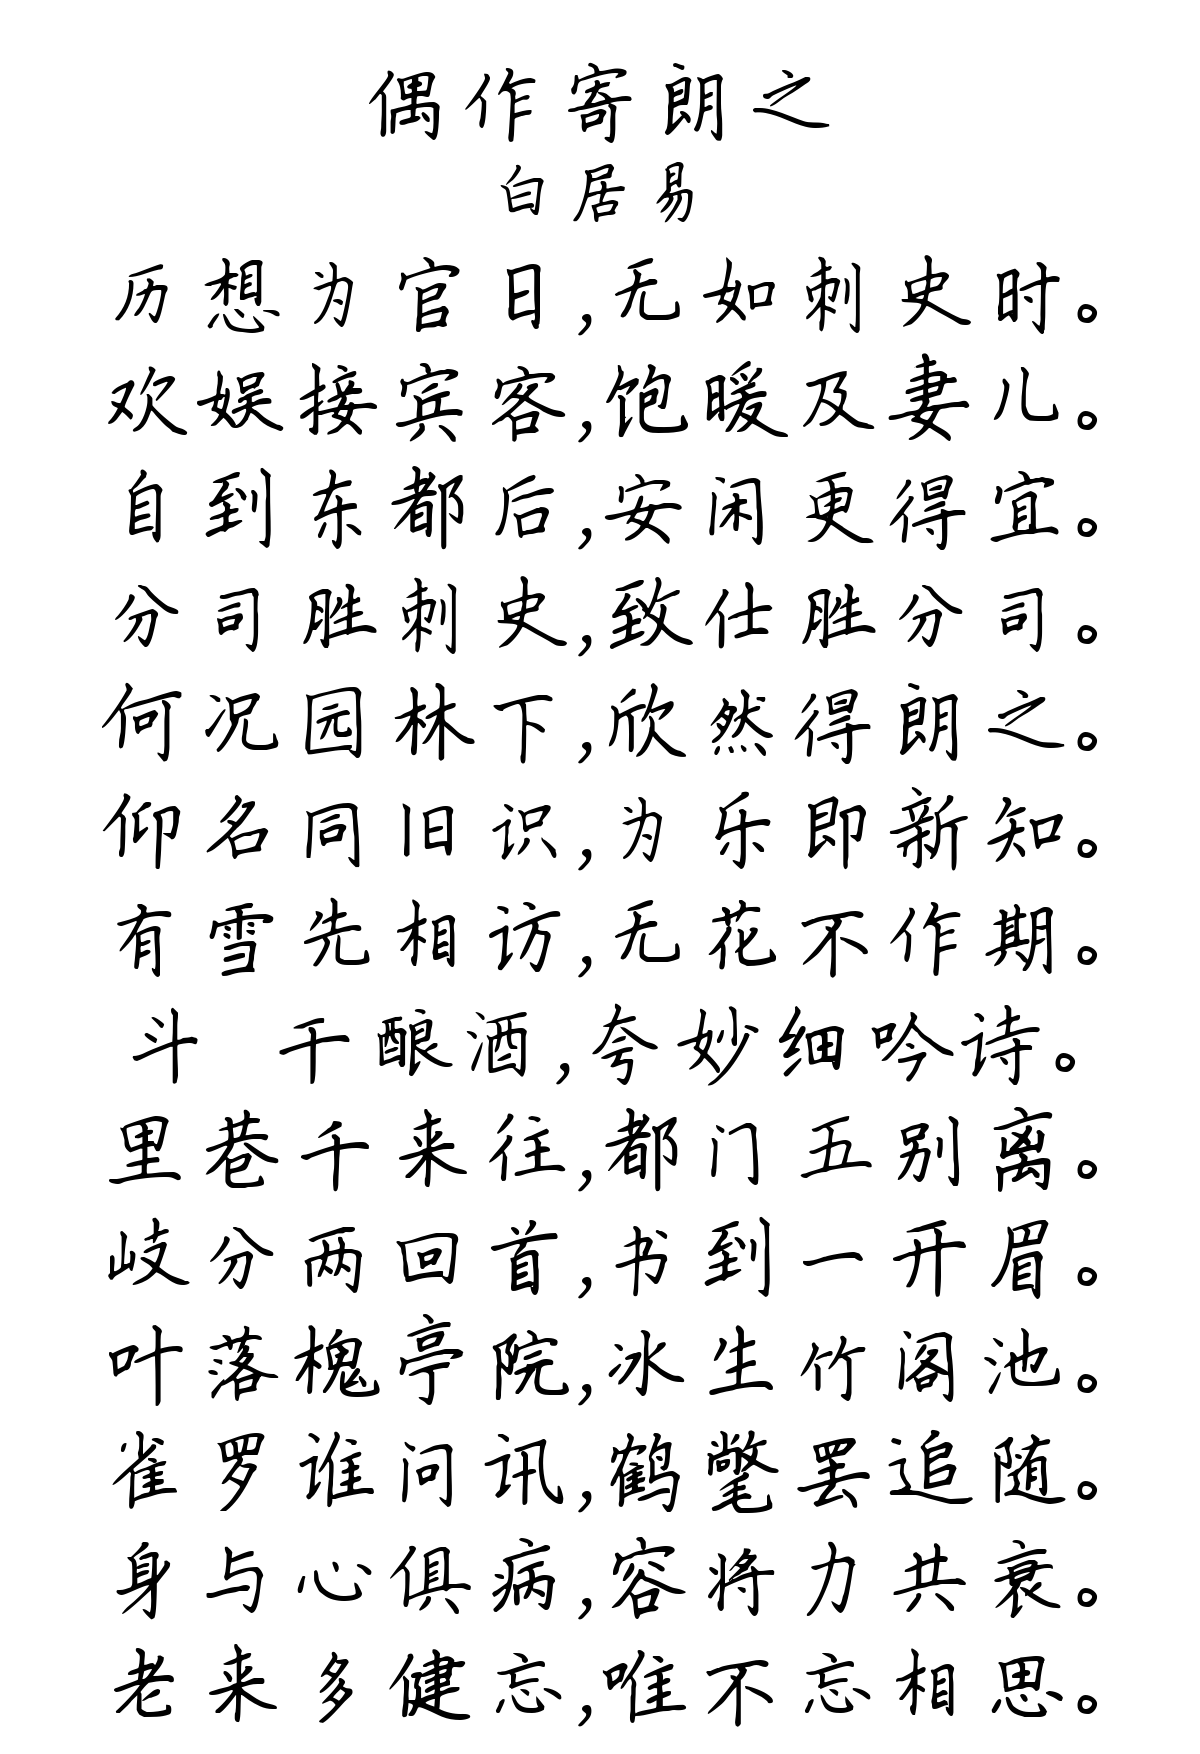 偶作寄朗之
白居易
历想为官日,无如刺史时。
欢娱接宾客,饱暖及妻儿。
自到东都后,安闲更得宜。
分司胜刺史,致仕胜分司。
何况园林下,欣然得朗之。
仰名同旧识,为乐即新知。
有雪先相访,无花不作期。
斗 干酿酒,夸妙细吟诗。
里巷千来往,都门五别离。
岐分两回首,书到一开眉。
叶落槐亭院,冰生竹阁池。
雀罗谁问讯,鹤氅罢追随。
身与心俱病,容将力共衰。
老来多健忘,唯不忘相思。